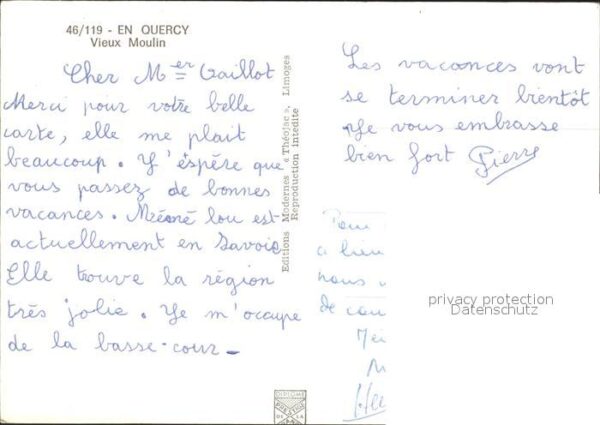 46/119 - EN QUERCY
Vieux Moulin
Cher Mer Gaillot
Merci pour votre belle
carte, elle me plait
beaucoup. J'éspère que
vous passez de bonnes
vacances. lou est
actuellement en Savoie
Elle trouve la région
très jolie. Je m'occupe
de la basse-cour -
Editions Modernes « Théojac », Limoges
Reproduction interdite
Les vacances vont
se terminer bientôt
Je vous embrasse
bien fort Pierre
a bien
nous
privacy protection
Datenschutz